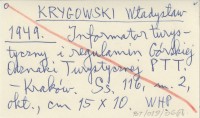 KRYGOWSKI Władysław
1949. Informator turys-
tyczny i regulamin Górskiej
Odznaki Turystycznej PTT.
- Kraków. Ss. 116, m. 2,
okt., cm 15 X 10. WHP